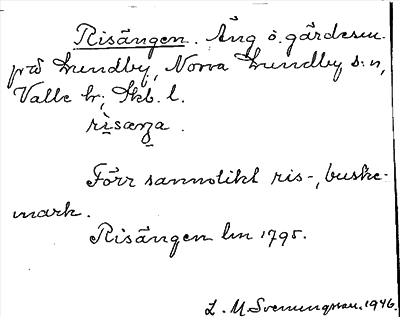 Risängen. Äng o. gärdesn.
på Lundby, Norra Lundby s:n,
Valle hd; Skb. l.
rìsæŋa.
Förr sannolikt ris-, buske-
mark.
Risängen lm 1795.
L. M. Svenungsson. 1946.